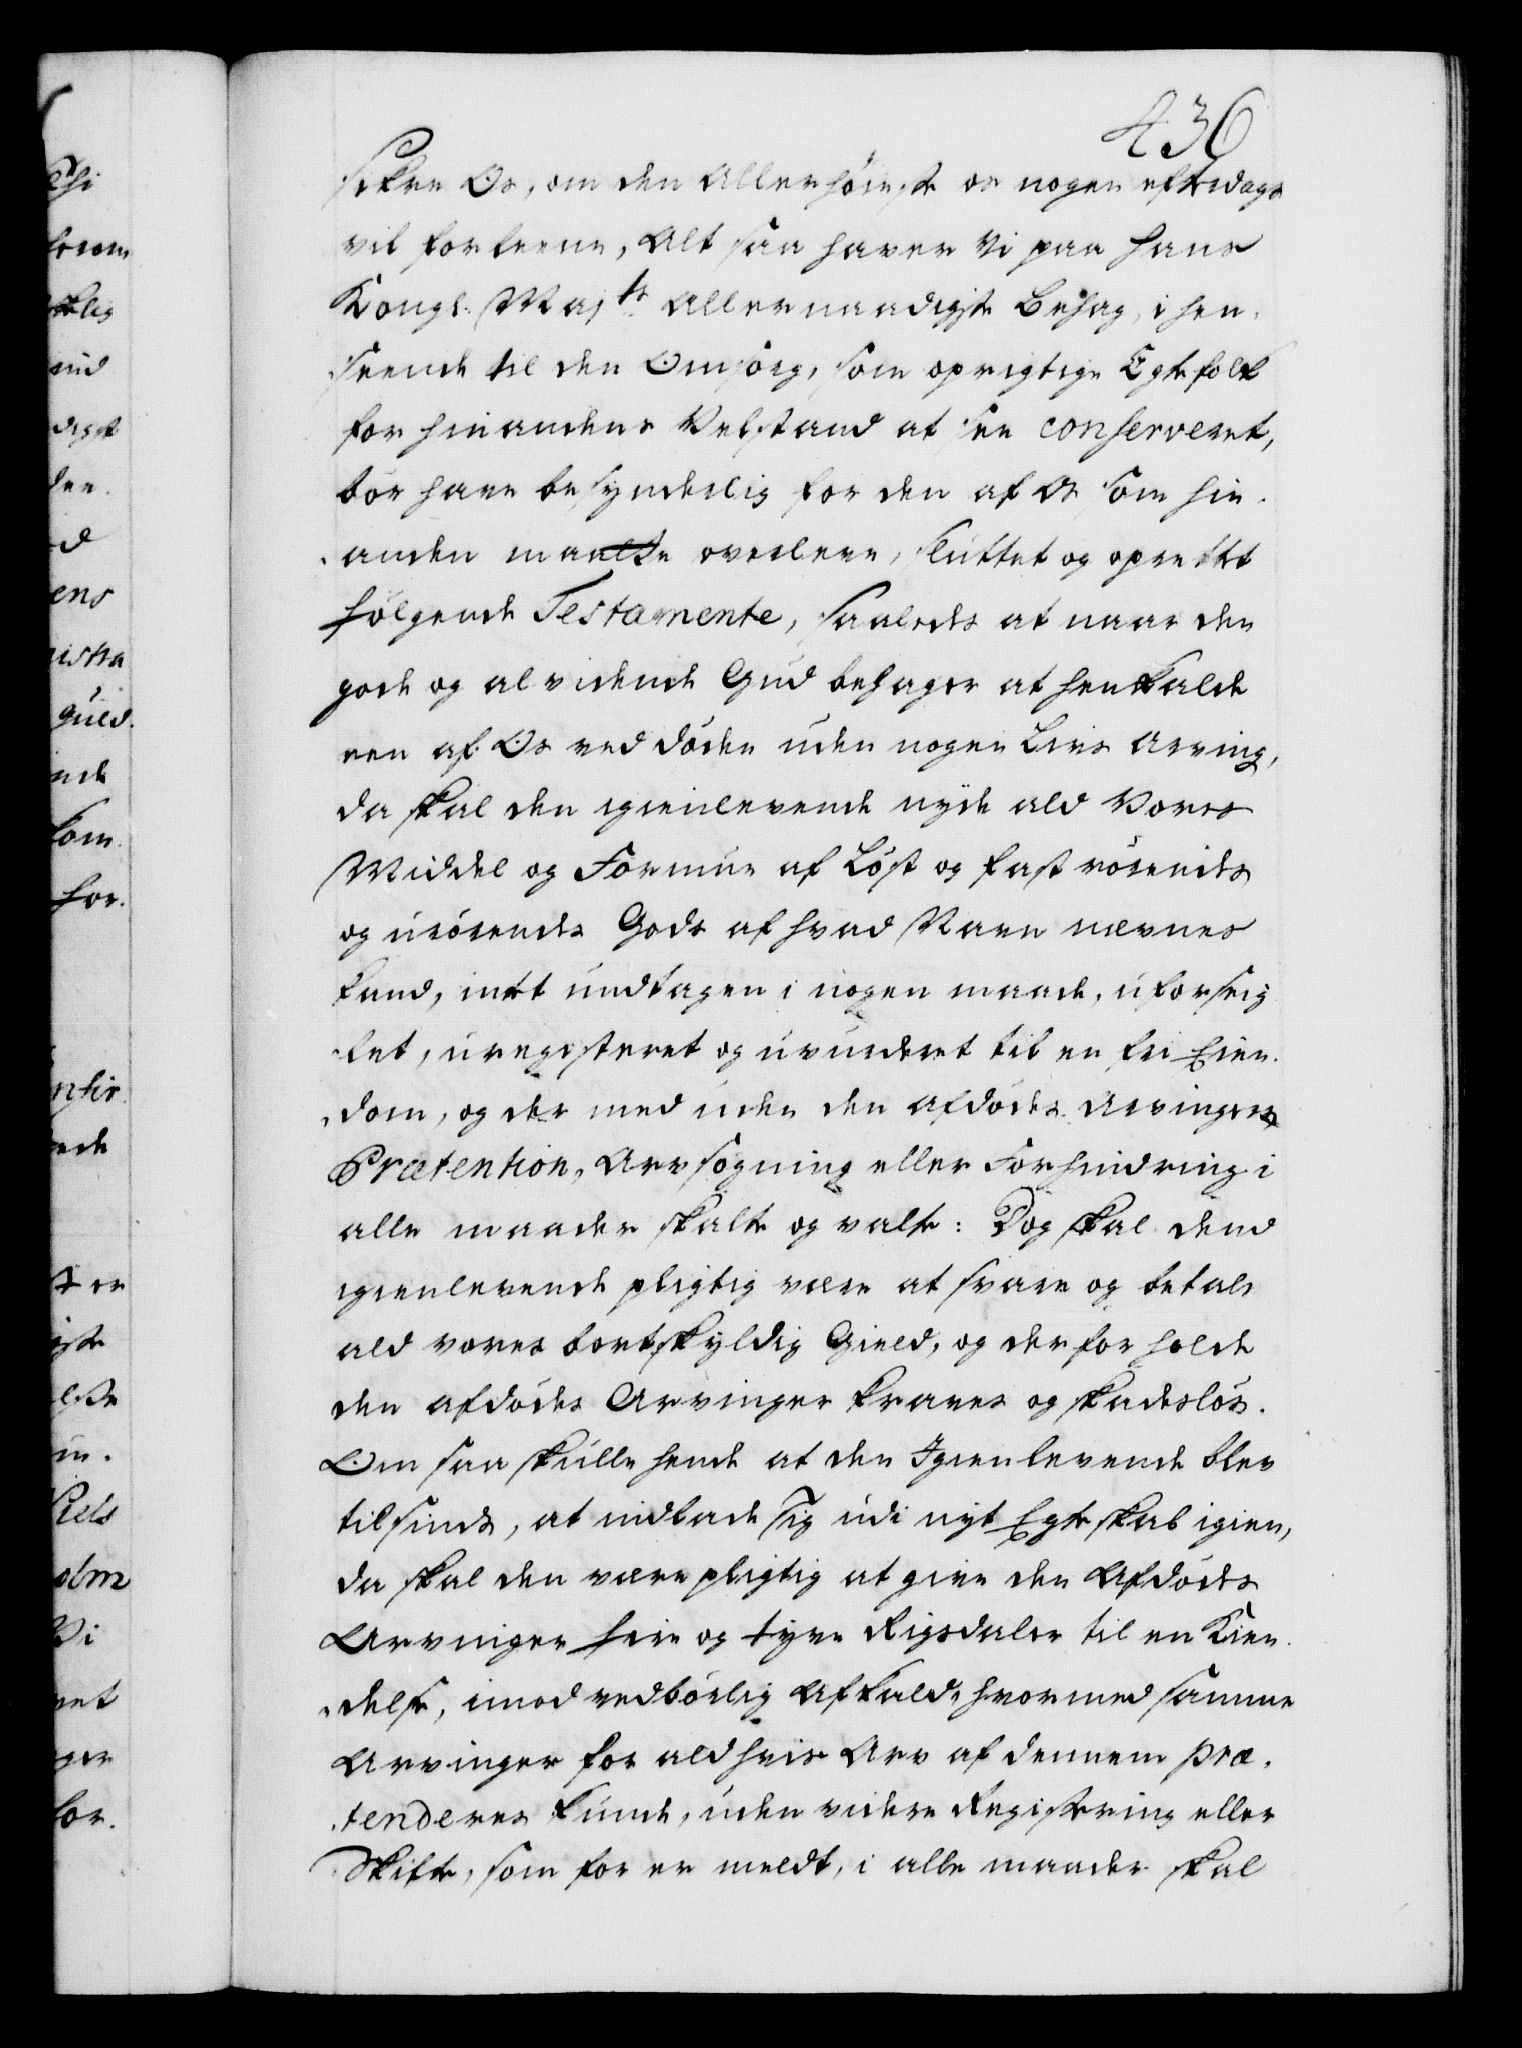 436
sikre Os, om den Allerhøieste os nogen eftredags
vil forleene, Alt saa haver Vi paa Hans
Kongl. Majts Allernaadigste Behag, i hen-
seende til den Omsorg, som oprigtige Egtefolk
for hinandens Velstand at see conserveret,
bør have besynderlig for den af Os som hin-
anden maatte overleve, sluttet og oprettet
følgende Testamente, saaledes at naar den
gode og alvidende Gud behager at henkalde
een af Os ved døden uden nogen Livs Arving,
da skal den igienlevende nyde ald Vores
Middel og Formue af Løst og fast rørendes
og urørendes Gods af hvad Navn nævnes
kand, intet undtagen i nogen maade, uforseig
let, uregisteret og uvurderet til en fri Eien-
dom, og der med uden den afdødes Arvingers
Prætention, Arv søgning eller Forhindring i
alle maader skalte og valte: Dog skal dend
igienlevende pligtig være at svare og betale
ald vores bortskyldig Gield, og derfor holde
den afdødes Arvinger kraves og skadesløs.
Om saa skulle hende at den Igienlevende blev
tilsinds, at indlade sig udi nyt Egteskab igien,
da skal den være pligtig at give den Afdødes
Arvinger fire og tyve Rigsdaler til en Kien-
delse, imod vedbørlig Afkald, hvormed samme
Arvinger for ald hvis Arv af dennem præ-
tenderes kunde, uden videre Registering eller
Skifte, som for er meldt, i alle maader skal